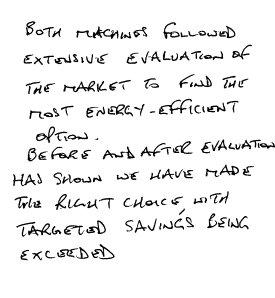 BOTH MACHINES FOLLOWED
EXTENSIVE EVALUATION OF
THE MARKET TO FIND THE
MOST ENERGY-EFFICIENT
OPTION.
BEFORE AND AFTER EVALUATION
HAS SHOWN WE HAVE MADE
THE RIGHT CHOICE WITH
TARGETED SAVINGS BEING
EXCEEDED